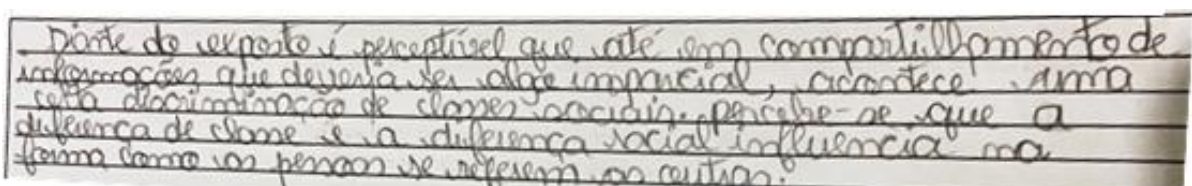 Diante do exposto é perceptível que até em compartilhamento de
informações que deveria ser algo imparcial, acontece uma
certa discriminação de classes sociais. percebe-se que a
diferença de classe e a diferença social influencia na
forma como as pessoas se referem as outras.